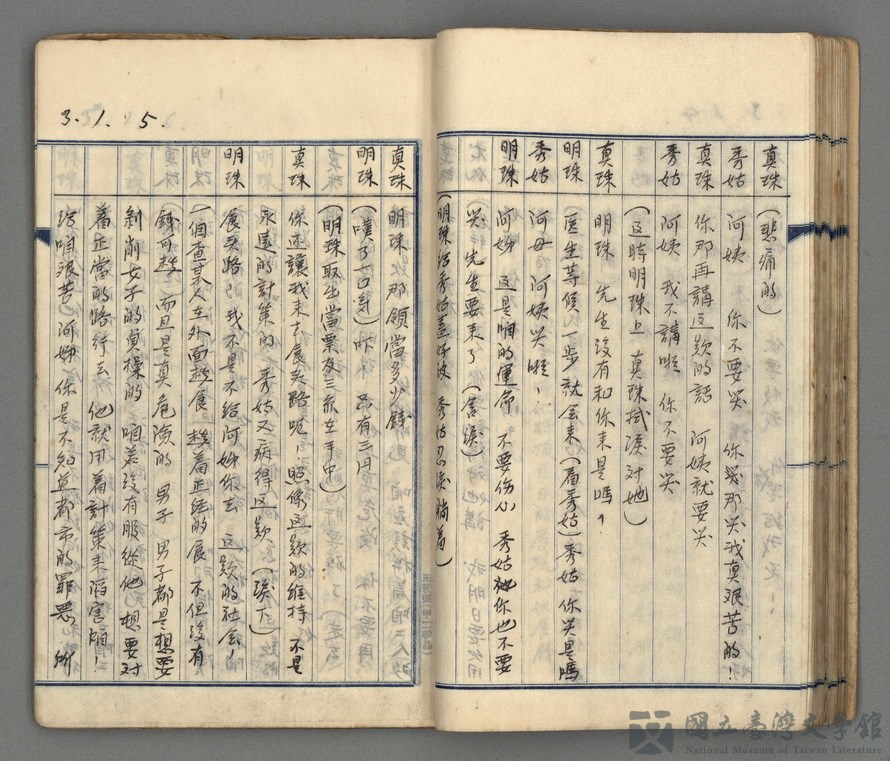 真珠 (悲痛的)
秀姑 阿姨 你不要哭 你哭那哭我真艱苦的!
真珠 你那再講這款的話 阿姨就要哭
秀姑 阿姨 我不講啦 你不要哭
(這時明珠上 真珠拭淚對她)
真珠 明珠 先生沒有和你來是嗎?
明珠 (医生等候一步就会來(看秀姑)秀姑 你哭是嗎
秀姑 阿母 阿姨哭啦!
明珠 阿姊 這是咱的運命 不要伤心 秀姑 你也不要
哭 先生要來了 (含淚)
(明珠給秀姑蓋 被 秀姑忍淚躺着)
3.1.5.
真珠 明珠 那領當多少錢
明珠 (嘆了一口氣) 咋 只有三円
(明珠取出當票及三 在手中)
真珠 你还讓我來去食头路呢! 照像這款的維持 不是
永遠的計策的 秀姑又病得這款 (淚下)
明珠 食头路! 我不是不給阿姊你去 這款的社会!
一個查某人在外面趁食 趁着正経的食 不但沒有
錢可趁 而且是真危險的 男子 男子都是想要
剝削女子的貞操的 咱若沒有服從他 想要对
着正當的路行去 他就用着計策來滔害咱!
給咱艱苦 阿姊 你是不知這都市的罪惡 所
國立臺灣文學館
National Museum of Taiwan Literature